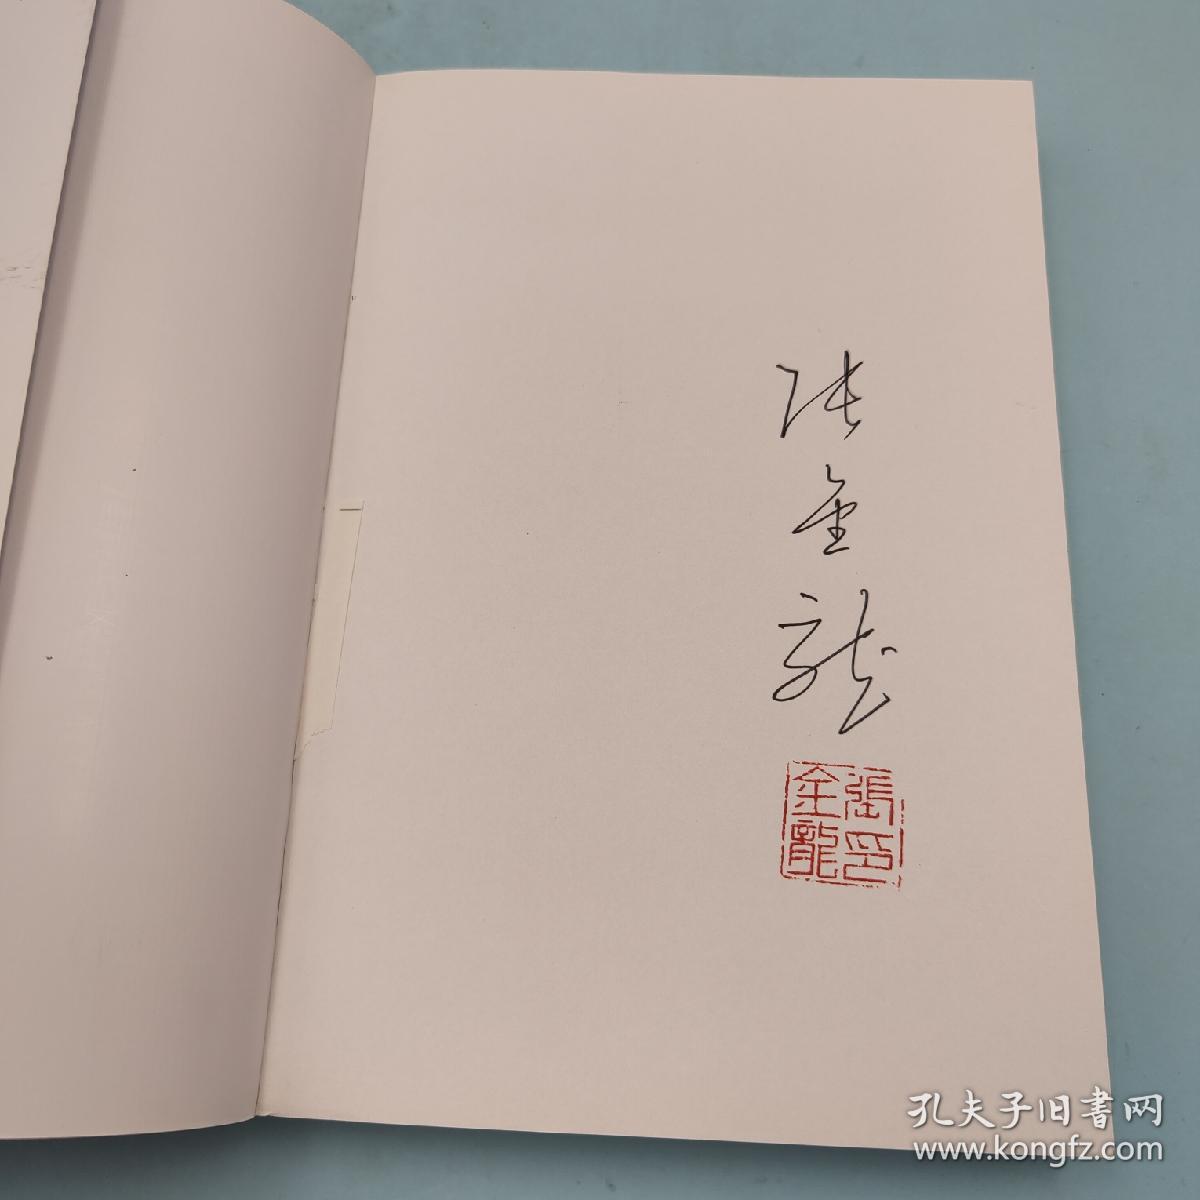 张金龙
張印
金龍
孔夫子旧書网
www.kongfz.com